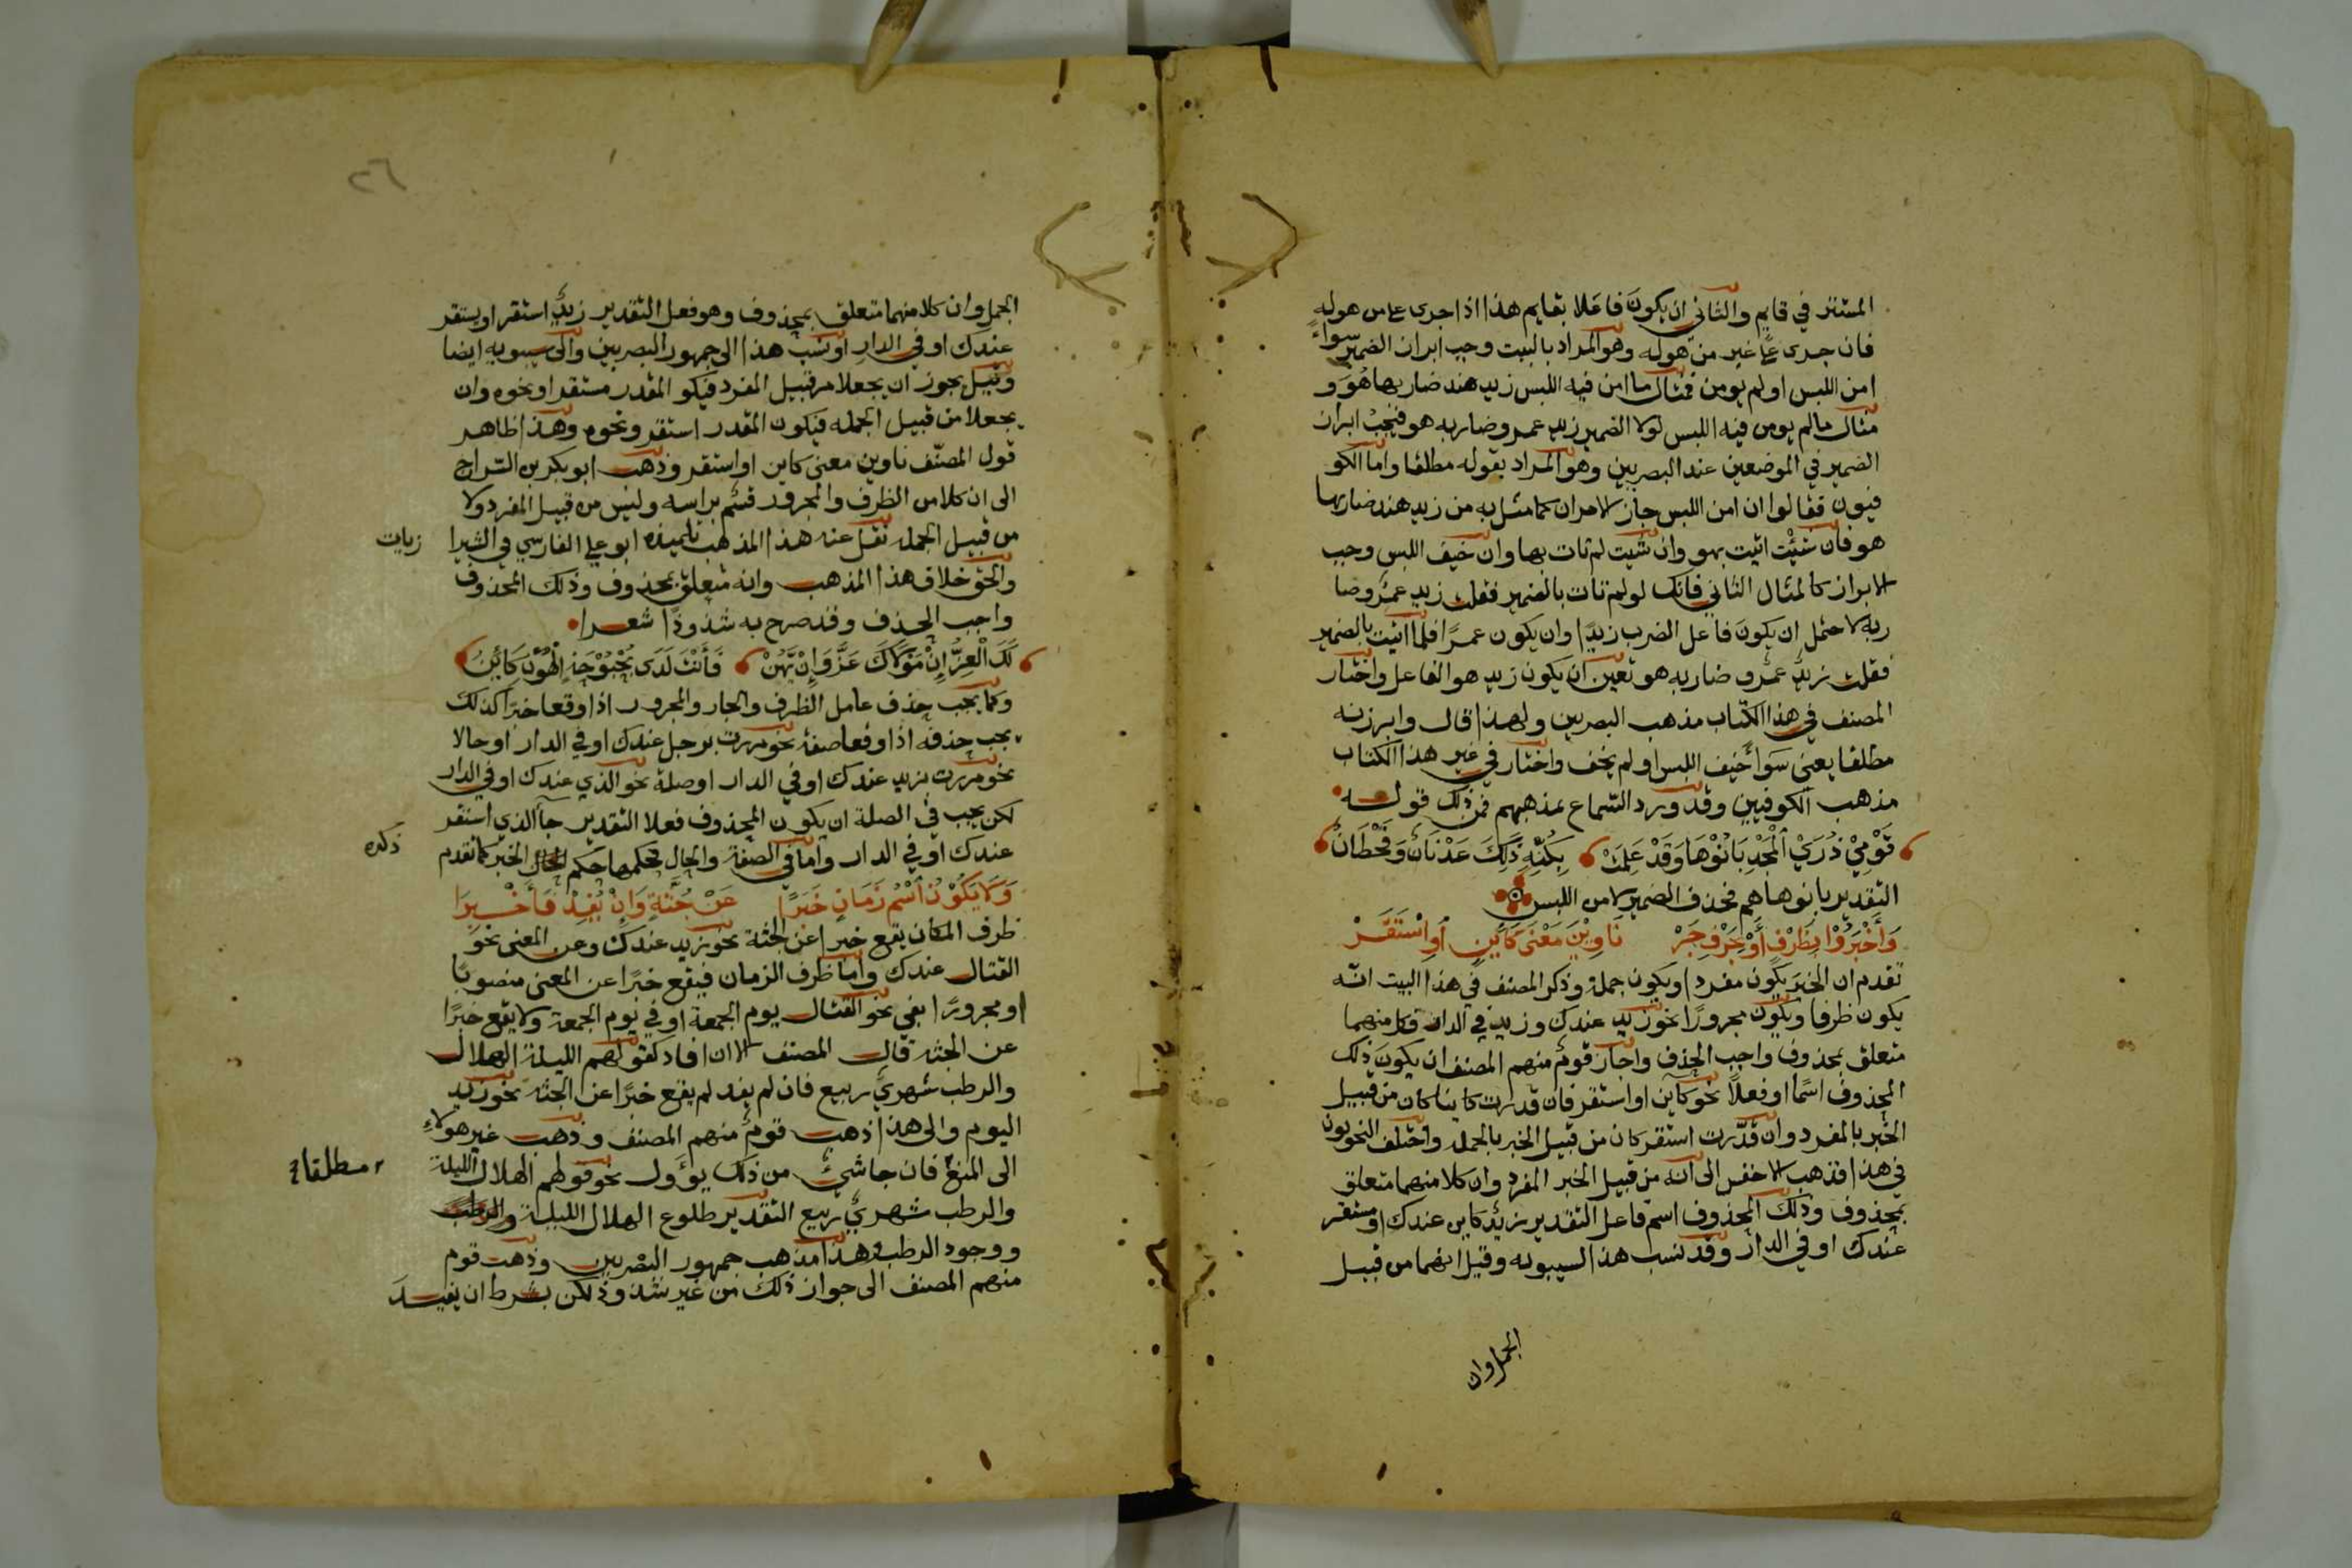 المستتر في قايم والثاني ان يكون فاعلا بقايم هذا اذا جرى على من هو له
فان جرى على غير من هو له وهو المراد بالبيت وجب ابراز الضمير سواء
امن اللبس او لم يومن فمثال ما امن فيه اللبس زيد هند ضاربها هُوَ و
مثال ما لم يومن فيه اللبس لولا الضمير زيد عمرو ضاربه هو فيجب ابراز
الضمير في الموضعين عند البصريين وهو المراد بقوله مطلقا واما الكو
فيون فقالوا ان امن اللبس جاز الامران كما مثل به من زيد هند ضاربها
هو فان شئت اتيت بهو وان شيت لم تات بها وان خيف اللبس وجب
الابراز كالمثال الثاني فانك لو لم تات بالضمير فقلت زيد عمرٌو ضا
ربه لاحتمل ان يكون فاعل الضرب زيدًا وان يكون عمرًا فلما اتيت بالضمير
فقلت زيدٌ عمرٌو ضاربه هو تعين ان يكون زيد هو الفاعل واختار
المصنف في هذا الكتاب مذهب البصريين ولهذا قال وابرزنه
مطلقا يعني سَوَا خيف اللبس او لم يخف واختار في غير هذا الكتاب
مذهب الكوفيين وقد ورد السماع بمذهبهم فمن ذلك قولـه
قَوْمِيْ ذُرَيْ الْمَجْدِ بَانُوْهَا وَقَدْ عَلِمَتْ بِكُنْهِ ذَلِكَ عَدْنَانٌ وَقَحْطَانُ
التقدير بانوها هم فحذف الضمير لامن اللبس
وَأَخْبَرُوْا بِظَرْفٍ أَوْ بِحَرْفِ جَرْ نَاوِيْنَ مَعْنَى كَايِنٍ أَوِ اسْتَقَـرّْ
تقدم ان الخبر يكون مفردا ويكون جملة وذكر المصنف في هذا البيت انّه
يكون ظرفا ويكون مجرورًا نحو زيد عندك وزيد في الدار فكل منهما
متعلق بمحذوف واجب الحذف واجاز قومٌ منهم المصنف ان يكون ذلك
المحذوف اسمًا او فعلاً نحو كاين او استقر فان قدرت كاينا كان من قبيل
الخبر بالمفرد وان قدّرت استقر كان من قبيل الخبر بالجملة واختلف النحويون
في هذا فذهب الاخفس الى انه من قبيل الخبر المفرد وان كلا منهما متعلق
بمحذوف وذلك المحذوف اسم فاعل التقدير زيدٌ كاين عندك او مستقر
عندك او في الدار وقد نسب هذا لسيبويه وقيل انهما من قبيل
الجمل وان
٢٦
الجمل وان كلا منهما متعلق بمحذوف وهو فعل التقدير زيدٌ استقر او يستقر
عندك او في الدار ونسب هذا الى جمهور البصريين والى سيبويه ايضا
وقيل يجوز ان يجعلا من قبيل المفرد فيكو المقدر مستقر او نحوه وان
يجعلا من قبيل الجمله فيكون المقدر استقر ونحوه وهذا ظاهر
قول المصنّف ناوين معنى كاين او استقر وذهب ابو بكر بن السّراج
الى ان كلا من الظرف والمجرور قسمٌ براسه وليس من قبيل المفرد ولا
من قبيل الجمله نقل عنه هذا المذهب تلميذه ابو علي الفارسي في الشيرا زيات
والحق خلاف هذا المذهب وانه متعلق بمحذوف وذلك المحذوف
واجب الحذف وقد صرح به شذوذًا شعـرا
لَكَ الْعِزُّ إِنْ مَوْلَاكَ عَزَّ وَإِنْ يَهُنْ فَأَنْتَ لَدَى بُحْبُوْحَةِ الْهُوْنِ كَائِنُ
وكما يجب حذف عامل الظرف والجار والمجرور اذا وقعا خبرًا كذلك
يجب حذفه اذا وقعا صفة نحو مررت برجل عندك او في الدار او حالا
نحو مررت بزيد عندك او في الدار او صلة نحو الذي عندك او في الدار
لكن يجب في الصلة ان يكون المحذوف فعلا التقدير جآ الذي استقر
عندك او في الدار واما في الصفة والحال فحكمها حكم الخبر كما تقدم ذكره
وَلَا يَكُوْنُ اسْمُ زَمَانٍ خَبَرًا عَنْ جُثَّةٍ وَإِنْ يُفِدْ فَأَخْـبِرَا
ظرف المكان يقع خبرا عن الجثة نحو زيد عندك وعن المعنى نحو
القتال عندك واما ظرف الزمان فيقع خبرًا عن المعنى منصوبًا
او مجرورًا بفي نحو القتال يوم الجمعة او في يوم الجمعة ولا يقع خبرًا
عن الجثه قال المصنف الا ان افاد كقولهم الليلة الهلال
والرطب شهريْ ربيع فان لم يفد لم يقع خبرًا عن الجثة نحو زيد
اليوم والى هذا ذهب قومٌ منهم المصنف وذهب غير هولاءِ
الى المنع فان جا شيئ من ذلك يؤول نحو قولهم الهلال الليلة مطلقا
والرطب شهريْ ربيع التقدير طلوع الهلال الليلة والرطب
ووجود الرطب وهذا مذهب جمهور البصريين وذهب قوم
منهم المصنف الى جواز ذلك من غير شذوذ لكن بشرط ان يفيـد